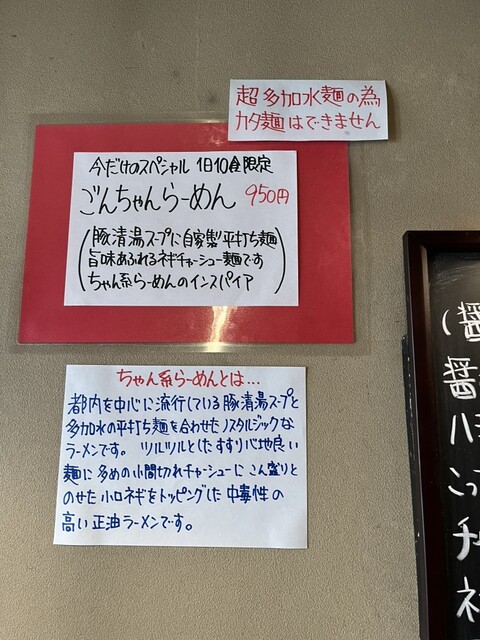 超多加水麺の為
カタ麺はできません
今だけのスペシャル 1日10食限定
ごんちゃんらーめん 950円
(豚清湯スープに自家製平打ち麺
旨味あふれるネギチャーシュー麺です
ちゃん系らーめんのインスパイア)
ちゃん系らーめんとは...
都内を中心に流行している豚清湯スープと
多加水の平打ち麺を合わせたノスタルジックな
ラーメンです。 ツルツルとしたすすり心地良い
麺に多めの小間切れチャーシューにこん盛りと
のせた小口ネギをトッピングした中毒性の
高い正油ラーメンです。
(醤
醤
ハ
こっ
チ
ネ